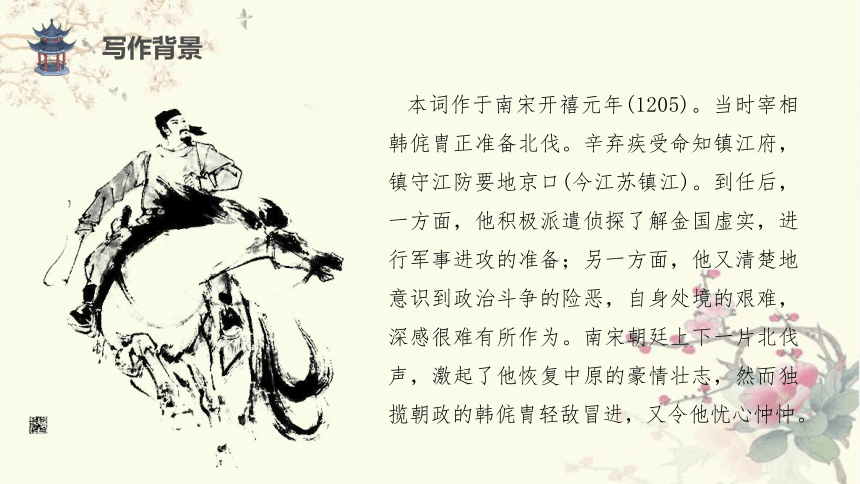 写作背景
本词作于南宋开禧元年(1205)。当时宰相
韩侂胄正准备北伐。辛弃疾受命知镇江府，
镇守江防要地京口(今江苏镇江)。到任后，
一方面，他积极派遣侦探了解金国虚实，进
行军事进攻的准备；另一方面，他又清楚地
意识到政治斗争的险恶，自身处境的艰难，
深感很难有所作为。南宋朝廷上下一片北伐
声，激起了他恢复中原的豪情壮志，然而独
揽朝政的韩侂胄轻敌冒进，又令他忧心忡忡。